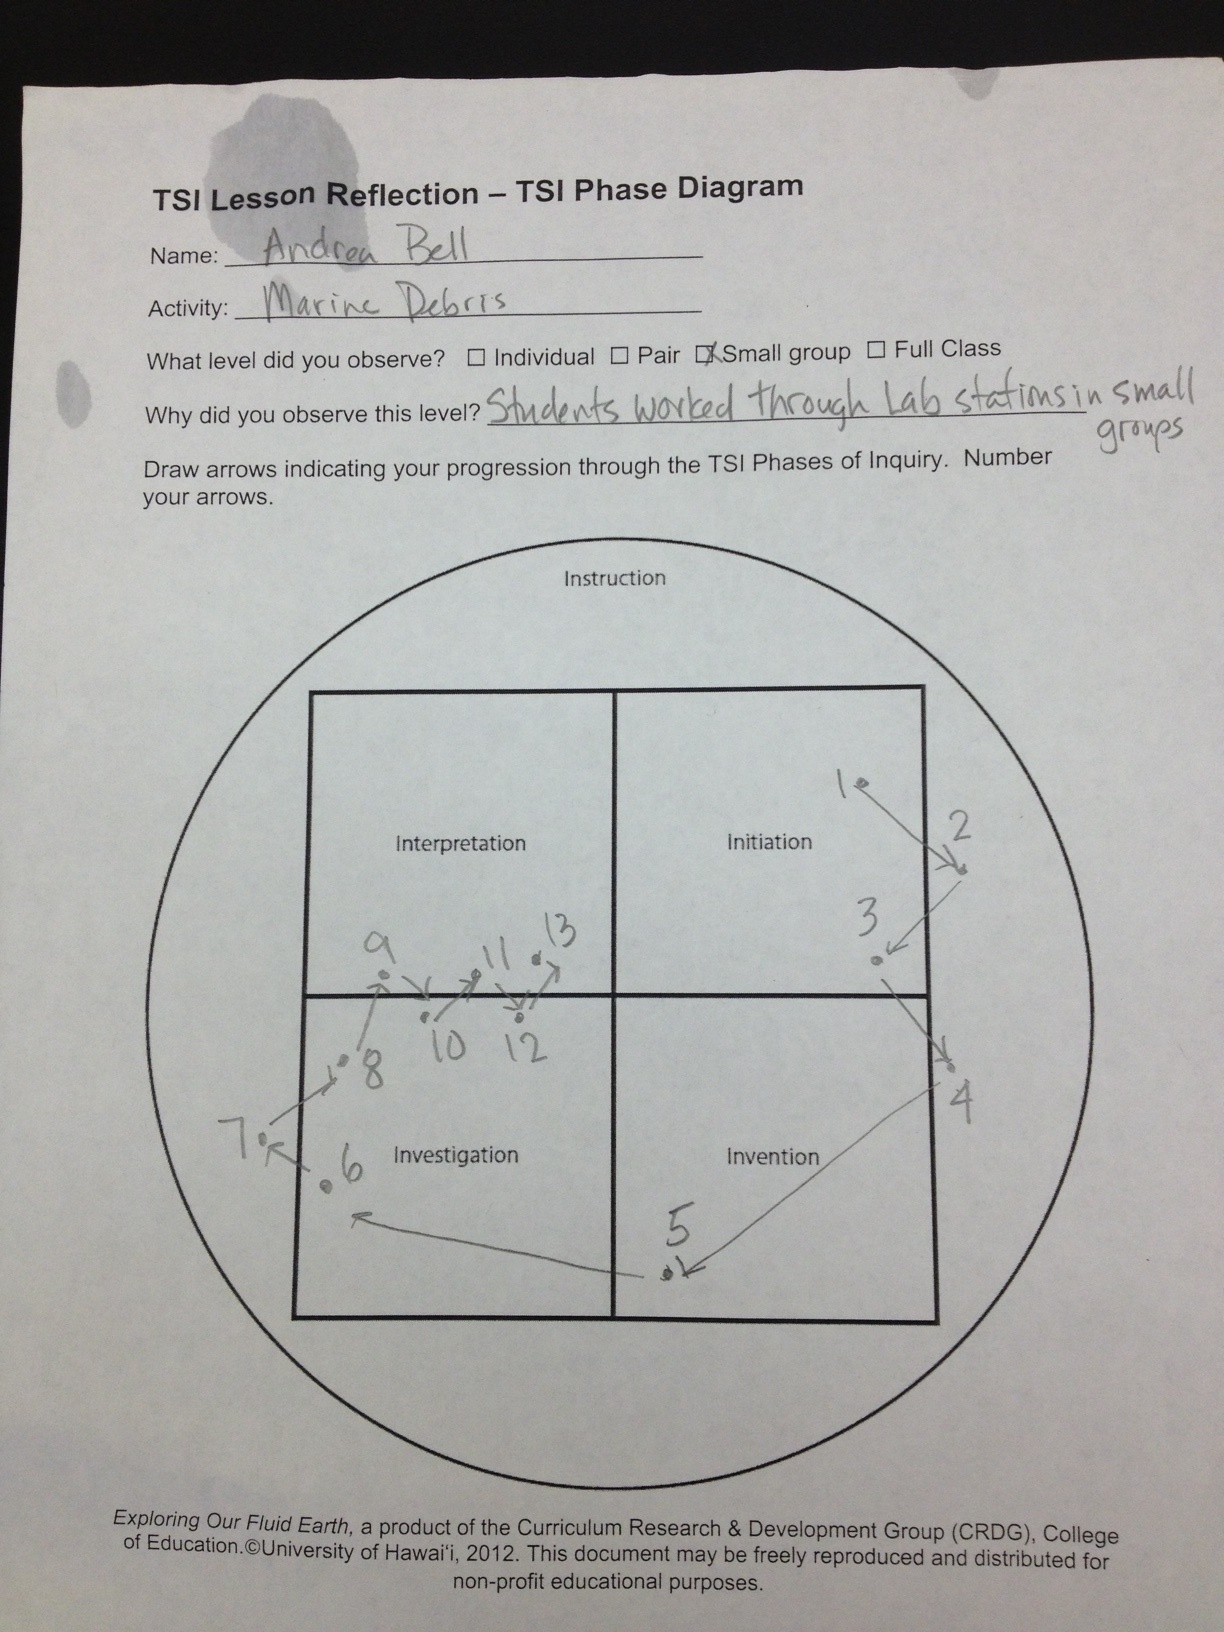 TSI Lesson Reflection – TSI Phase Diagram
Name: Andrea Bell
Activity: Marine Debris
What level did you observe? ☐ Individual ☐ Pair ☒ Small group ☐ Full Class
Why did you observe this level? Students worked through Lab stations in small
groups
Draw arrows indicating your progression through the TSI Phases of Inquiry. Number
your arrows.
Instruction
1
2
Interpretation Initiation
3
9 11 13
10 12
8
4
7
6
Investigation Invention
5
Exploring Our Fluid Earth, a product of the Curriculum Research & Development Group (CRDG), College
of Education.©University of Hawai‘i, 2012. This document may be freely reproduced and distributed for
non-profit educational purposes.